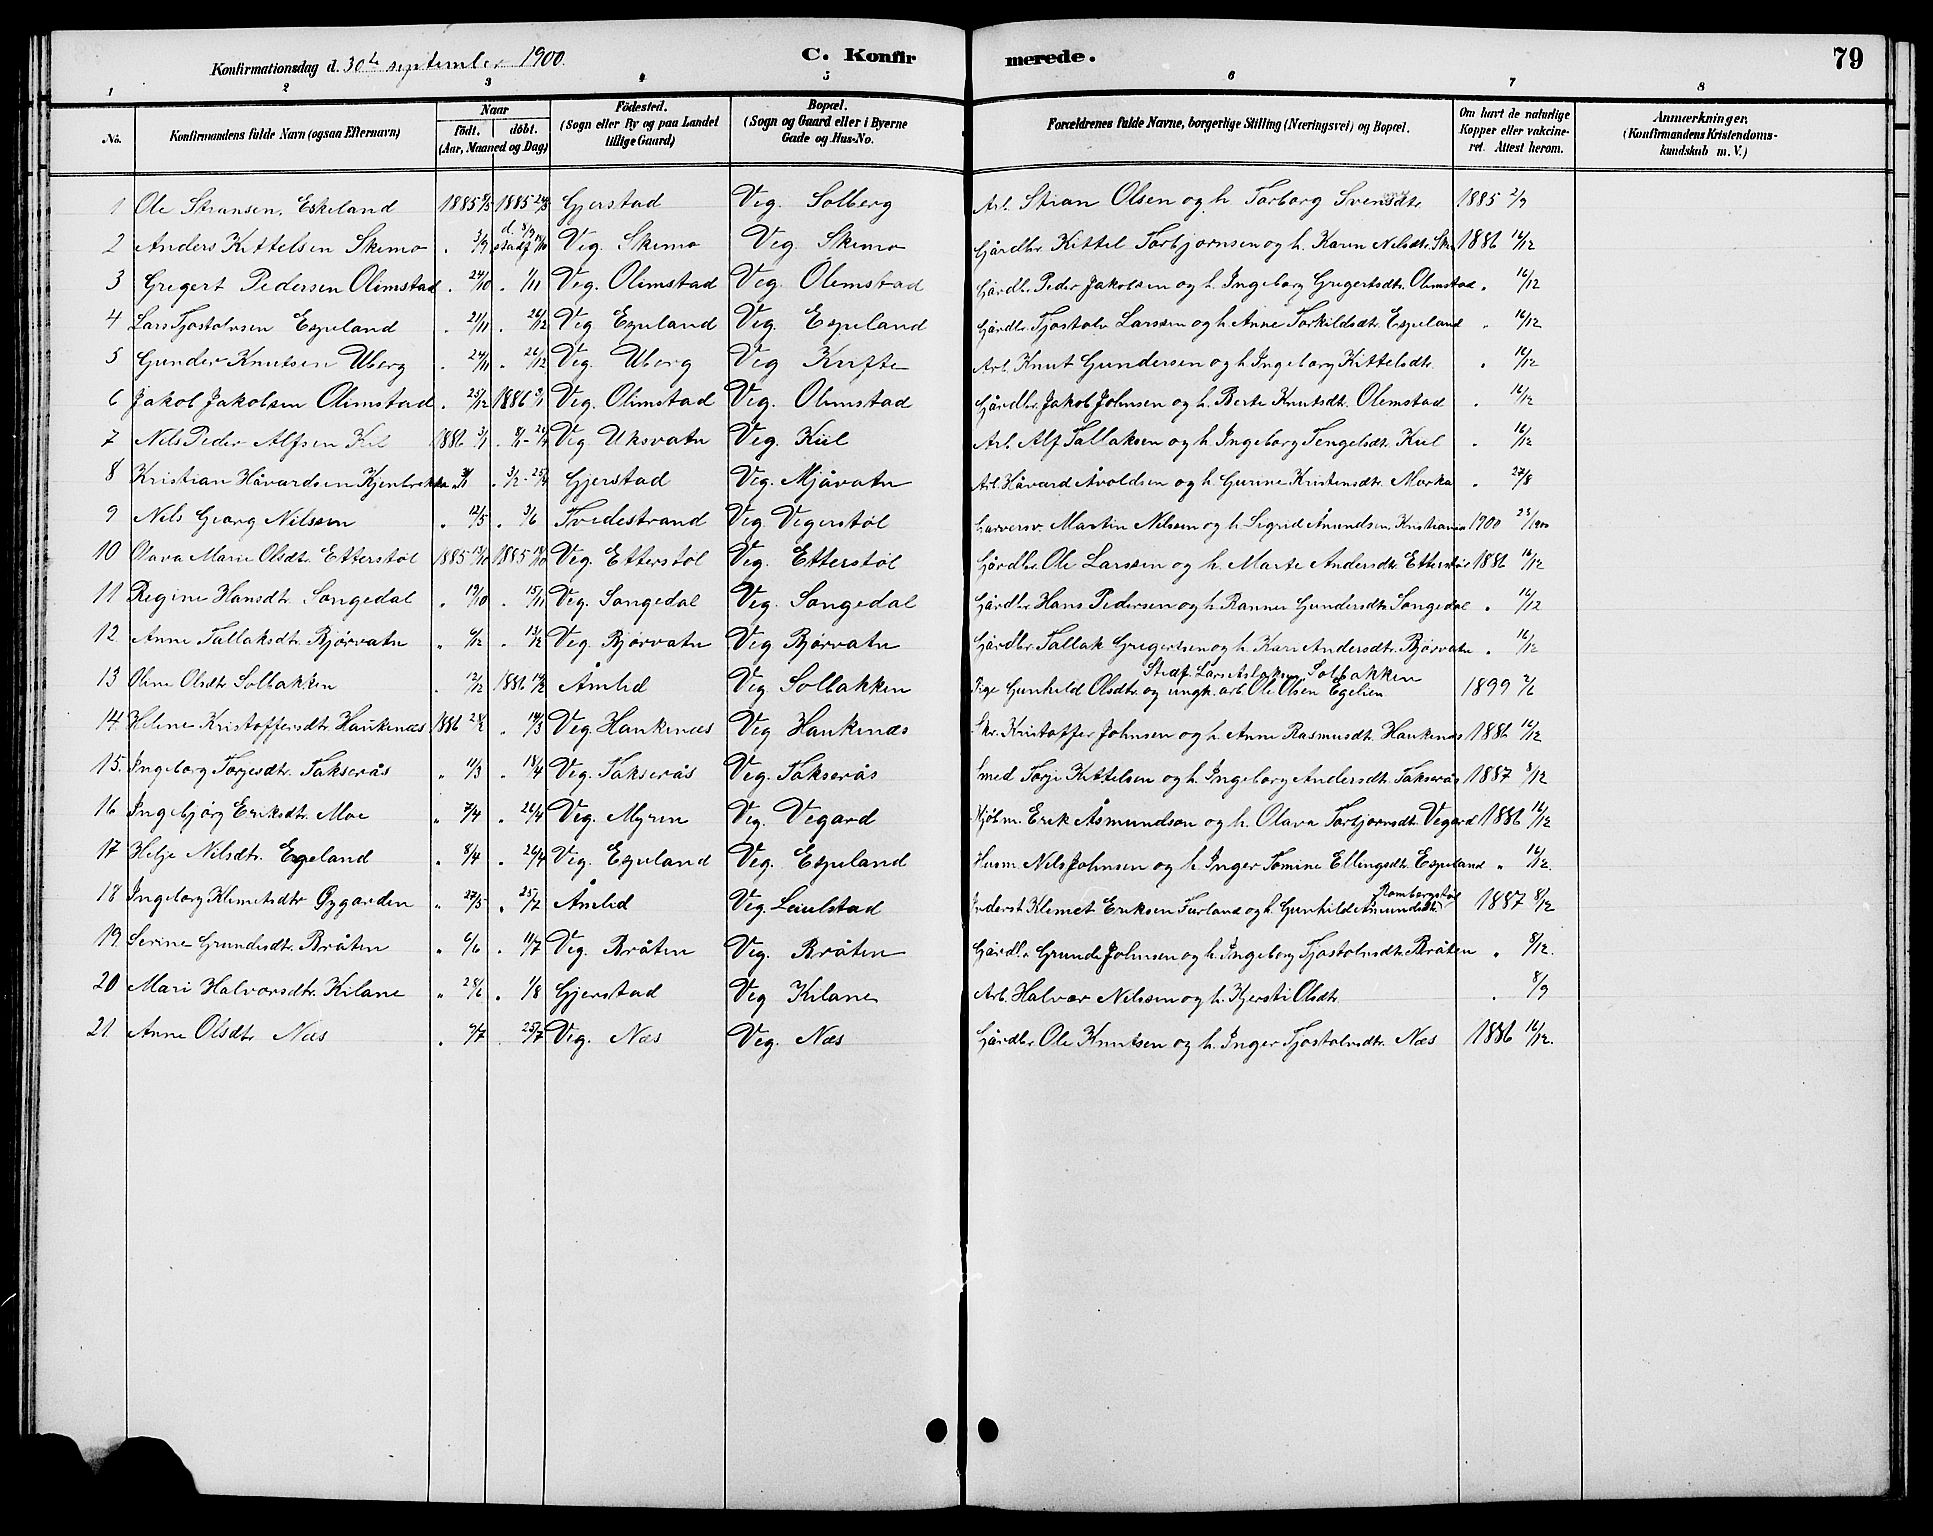 Konfirmationsdag d. 30te september 1900. C. Konfirmerede. 79
1 2 3 4 5 6 7 8
No. Konfirmandens fulde Navn (ogsaa Efternavn) Naar födt. döbt. (Aar, Maaned og Dag) Födested. (Sogn eller By og paa Landet tillige Gaard) Bopæl. (Sogn og Gaard eller i Byerne Gade og Hus-No. Forældrenes fulde Navne, borgerlige Stilling (Næringsvei) og Bopæl. Om havt de naturlige Kopper eller vakcineret. Attest herom. Anmærkninger, (Konfirmandens Kristendomskundskab m. V.)
1 Ole Stiansen Eskeland 1885 1885 24/5 Gjerstad Veg. Solberg Arb. Stian Olsen og h. Torborg Svensdtr. 1885 2/9
2 Anders Kittelsen Skimo . 3/9 Veg. Skimo Veg. Skimo Gårdbr. Kittel Torbjørnsen og h. Karen Nilsdtr. 1886 16/12
3 Gregert Pedersen Olimstad . 24/10 . 1/11 Veg. Olimstad Veg. Olimstad Gårdbr. Peder Jakobsen og h. Ingeborg Gregertsdtr. Olimstad " 16/12
4 Lars Tjostolvsen Espeland . 21/11 . 26/12 Veg Espeland Veg. Espeland Gårdbr. Tjostolv Larssen og h. Anne Torkildsdtr. Espeland " 16/12
5 Gunder Knutsen Uberg . 24/11 . 26/12 Veg. Uberg Veg Knifte Arb. Knut Gundersen og h. Ingeborg Kittelsdtr. " 16/12
6 Jakob Jakobsen Olimstad . 25/12 1886 Veg. Olimstad Veg. Olimstad Gårdbr. Jakob Johnsen og h. Berte Knutsdtr. Olimstad . 16/12
7 Nils Peder Alfsen Kiil 1886 3/1 Veg Uksvatn Veg. Kiil Arb. Alf Tallaksen og h. Ingeborg Tengelsdtr. Kiil . 16/12
8 Kristian Håvardsen . 3/2 - 25/4 Gjerstad Veg. Mjåvatn Arb. Håvard Åvoldsen og h. Gurine Kristensdtr. Morka . 27/8
9 Nils Georg Nilssen " 12/5 . 3/6 Tvedestrand Veg Vegerstøl Garversv. Martin Nilsen og h. Sigrid Anundsen, Kristiania 1900 23/1900
10 Olava Marie Olsdtr. Etterstøl 1885 1885 Veg. Etterstøl Veg. Etterstøl Gårdbr. Ole Larssen og h. Marte Andersdtr. Etterstøl 1886 16/12
11 Regine Hansdtr. Songedal " 19/10 . 15/11 Veg. Songedal Veg. Songedal Gårdbr. Hans Pedersen og h. Ranner Gundersdtr. Songedal " 16/12
12 Anne Tallaksdtr. Bjørvatn " 6/12 . 13/12 Veg. Bjørvatn Veg Bjørvatn Gårdbr. Tallak Gregertsen og h. Kari Andersdtr. Bjørvatn " 16/12
Stedf. Lars Aslaksen, Solbakken
13 Oline Olsdtr. Solbakken . 12/12 1886 14/2 Åmlid Veg Solbakken Pige Gunhild Olsdtr. og ungk. arb. Ole Olsen Egelien 1899 2/6
14. Helene Kristoffersdtr. Haukenæs 1886 23/2 . 14/3 Veg. Haukenæs Veg Haukenæs Skr. Kristoffer Johnsen og h. Anne Rasmusdtr. Haukenæs 1886 16/12
15. Ingeborg Torjesdtr. Takserås " 11/3 . 18/4 Veg. Takserås Veg. Takserås Smed Torje Kittelsen og h. Ingeborg Andersdtr. Takserås 1887 8/12
16 Ingebjørg Eriksdtr. Moe " 7/4 . 26/4 Veg. Myren Veg. Vegard Kjøbm. Erik Åsmundsen og h. Olava Torbjørnsdtr. Vegard 1886 16/12
17 Helje Nilsdtr. Egeland " 8/4 . 26/4 Veg. Espeland Veg. Espeland Husm. Nils Johnsen og h. Inger Tomine Ellingsdtr. Espeland " 16/12
18 Ingeborg Klemetsdtr. Gygarden " 27/5 . 25/7 Åmlid Veg. Leiulstad Inderst Klemet Eriksen Furland og h. Gunhild Åmundsdtr. 1887 8/12
19 Serine Grundesdtr. Bråten " 6/6 . 11/7 Veg. Bråten Veg. Bråten Gårdbr. Grunde Johnsen og h. Ingeborg Tjostolvsdtr. Bråten " 8/12.
20 Mari Halvorsdtr. Kilane " 28/6 " 1/8 Gjerstad Veg Kilane Arb. Halvor Nilssen og h. Kjersti Olsdtr. . 8/9
21. Anne Olsdtr. Næs . 9/7 . 25/7 Veg. Næs Veg. Næs Gårdbr. Ole Knutsen og h. Inger Tjostolvsdtr. Næs 1886 16/12.